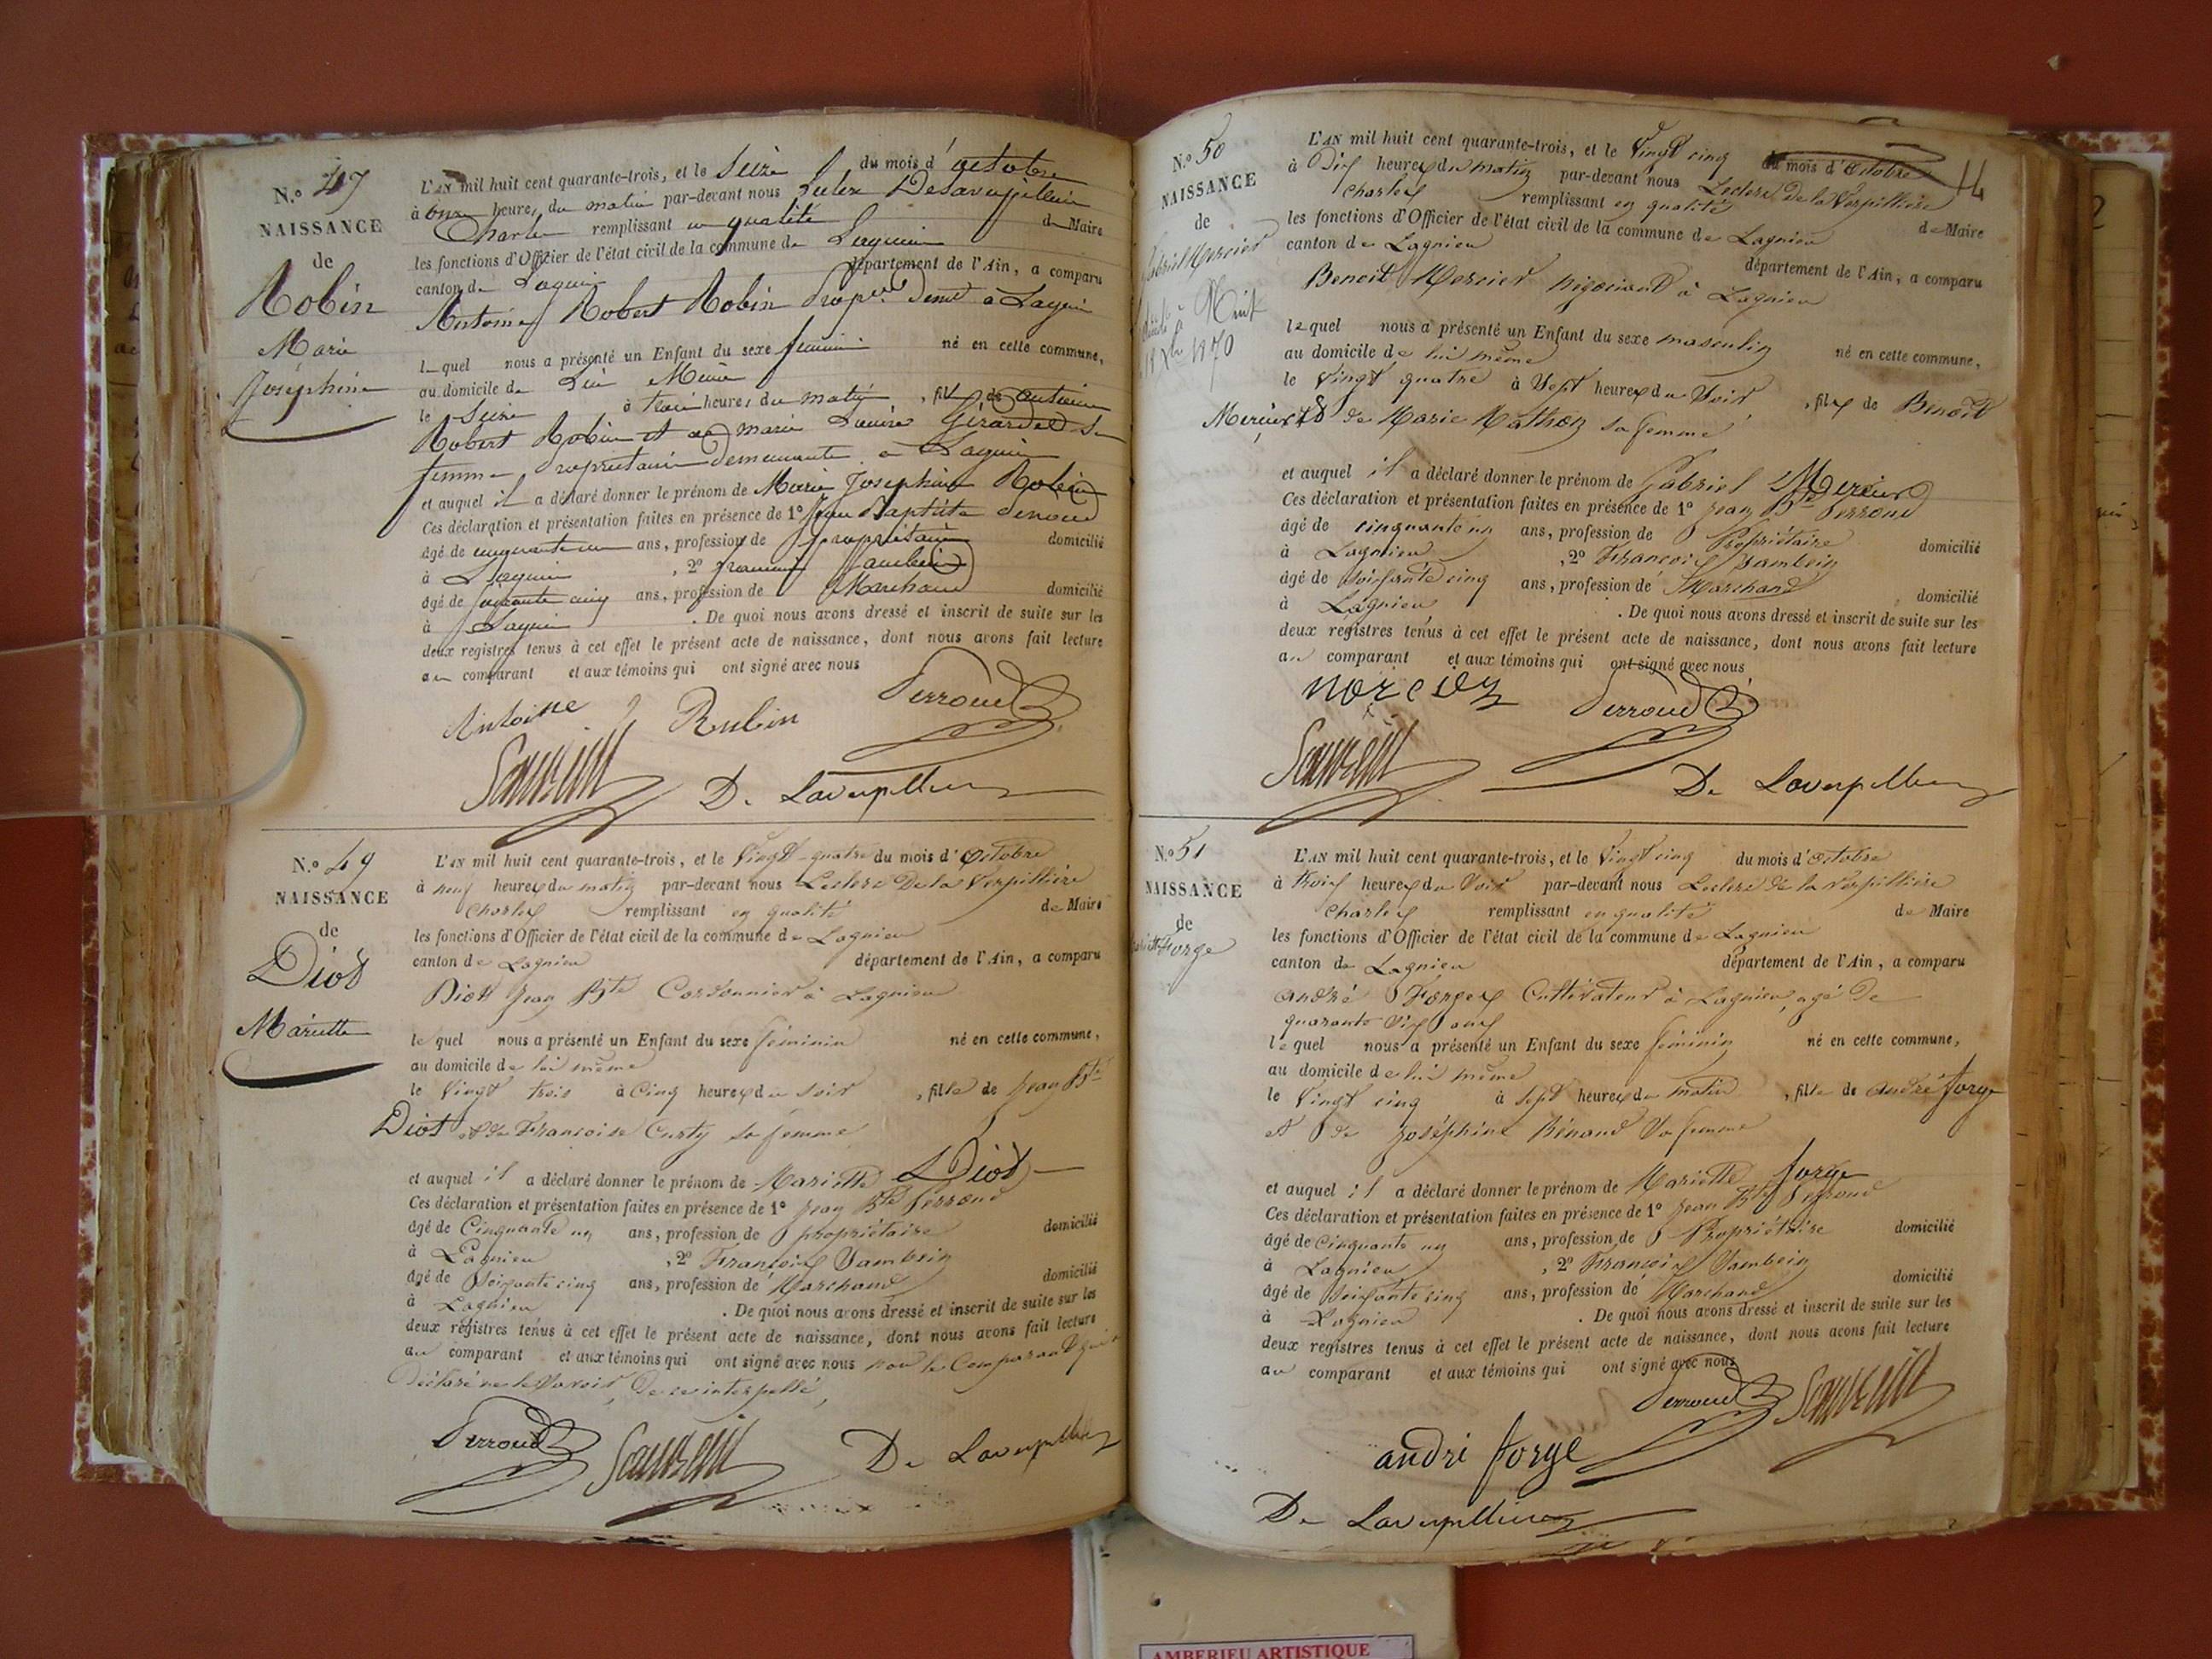 N.o 47
NAISSANCE
de
Robin
Marie
Joséphine
L'AN mil huit cent quarante-trois, et le Seize du mois d'octobre
à onze heures du matin par-devant nous
Charles remplissant en qualité de Maire
les fonctions d'Officier de l'état civil de la commune de Lagnieu
canton de Lagnieu département de l'Ain, a comparu
Antoine Robert Robin Propre demt à Lagnieu
lequel nous a présenté un Enfant du sexe feminin né en cette commune,
au domicile de Lui Même
le Seize à trois heures du matin, fille de antoine
Robert Robin et de marie Girardet Sa
femme propriétaire demeurante a Lagnieu
et auquel il a déclaré donner le prénom de Marie Josephine Robin
Ces déclaration et présentation faites en présence de 1o Jean Baptiste Perroud
âgé de cinquante un ans, profession de propriétaire domicilié
à Lagnieu, 2o françois
âgé de soixante cinq ans, profession de Marchand domicilié
à Lagnieu. De quoi nous avons dressé et inscrit de suite sur les
deux registres tenus à cet effet le présent acte de naissance, dont nous avons fait lecture
au comparant et aux témoins qui ont signé avec nous
Antoine Robin Perroud
D. Laverpilliere
N.o 49
NAISSANCE
de
Diot
Mariette
L'AN mil huit cent quarante-trois, et le Vingt-quatre du mois d'Octobre
à neuf heures du matin par-devant nous Leclerc De la Verpillière
Charles remplissant en qualité de Maire
les fonctions d'Officier de l'état civil de la commune de Lagnieu
canton de Lagnieu département de l'Ain, a comparu
Diot Jean Bte Cordonnier à Lagnieu
lequel nous a présenté un Enfant du sexe féminin né en cette commune,
au domicile de lui même
le Vingt trois à Cinq heures du soir, fille de Jean Bte
Diot et de Francoise Curty sa femme
et auquel il a déclaré donner le prénom de Mariette Diot
Ces déclaration et présentation faites en présence de 1o Jean Bte Perroud
âgé de Cinquante un ans, profession de propriétaire domicilié
à Lagnieu, 2o François Jambein
âgé de Soixante cinq ans, profession de Marchand domicilié
à Lagnieu. De quoi nous avons dressé et inscrit de suite sur les
deux registres tenus à cet effet le présent acte de naissance, dont nous avons fait lecture
au comparant et aux témoins qui ont signé avec nous non le Comparant qui a
Déclaré ne le Savoir, De ce interpellé,
Perroud D. Laverpilliere
N.o 50
NAISSANCE
de
Gabriel Mercier
1870
L'AN mil huit cent quarante-trois, et le Vingt cinq du mois d'Octobre 14
à Dix heures du matin par-devant nous Leclerc De la Verpillière
Charles remplissant en qualité de Maire
les fonctions d'Officier de l'état civil de la commune de Lagnieu
canton de Lagnieu département de l'Ain, a comparu
Benoit Mercier Négociant à Lagnieu
lequel nous a présenté un Enfant du sexe masculin né en cette commune,
au domicile de lui même
le Vingt quatre à Sept heures du Soir, fils de Benoît
Mercier et de Marie Mathon sa femme
et auquel il a déclaré donner le prénom de Gabriel Mercier
Ces déclaration et présentation faites en présence de 1o Jean Bte Perroud
âgé de cinquante un ans, profession de Propriétaire domicilié
à Lagnieu, 2o François Jambein
âgé de Soixante cinq ans, profession de Marchand domicilié
à Lagnieu. De quoi nous avons dressé et inscrit de suite sur les
deux registres tenus à cet effet le présent acte de naissance, dont nous avons fait lecture
au comparant et aux témoins qui ont signé avec nous
Perroud
De Laverpilliere
N.o 51
NAISSANCE
de
Forge
L'AN mil huit cent quarante-trois, et le Vingt cinq du mois d'octobre
à trois heures du Soir par-devant nous Leclerc de la Verpillière
Charles remplissant en qualité de Maire
les fonctions d'Officier de l'état civil de la commune de Lagnieu
canton de Lagnieu département de l'Ain, a comparu
André Forges Cultivateur à Lagnieu, agé De
quarante Six ans
lequel nous a présenté un Enfant du sexe féminin né en cette commune,
au domicile de lui même
le Vingt cinq à sept heures du matin, fille de André forge
et de Joséphine Rénaud Sa femme
et auquel il a déclaré donner le prénom de Mariette forge
Ces déclaration et présentation faites en présence de 1o Jean Bte Perroud
âgé de cinquante un ans, profession de Propriétaire domicilié
à Lagnieu, 2o François Jambein
âgé de Soixante cinq ans, profession de Marchand domicilié
à Lagnieu. De quoi nous avons dressé et inscrit de suite sur les
deux registres tenus à cet effet le présent acte de naissance, dont nous avons fait lecture
au comparant et aux témoins qui ont signé avec nous
Perroud
andré forge
De Laverpilliere
AMBERIEU ARTISTIQUE